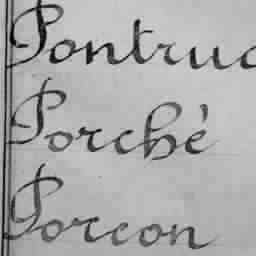 Pontruc
Porché
Porcon